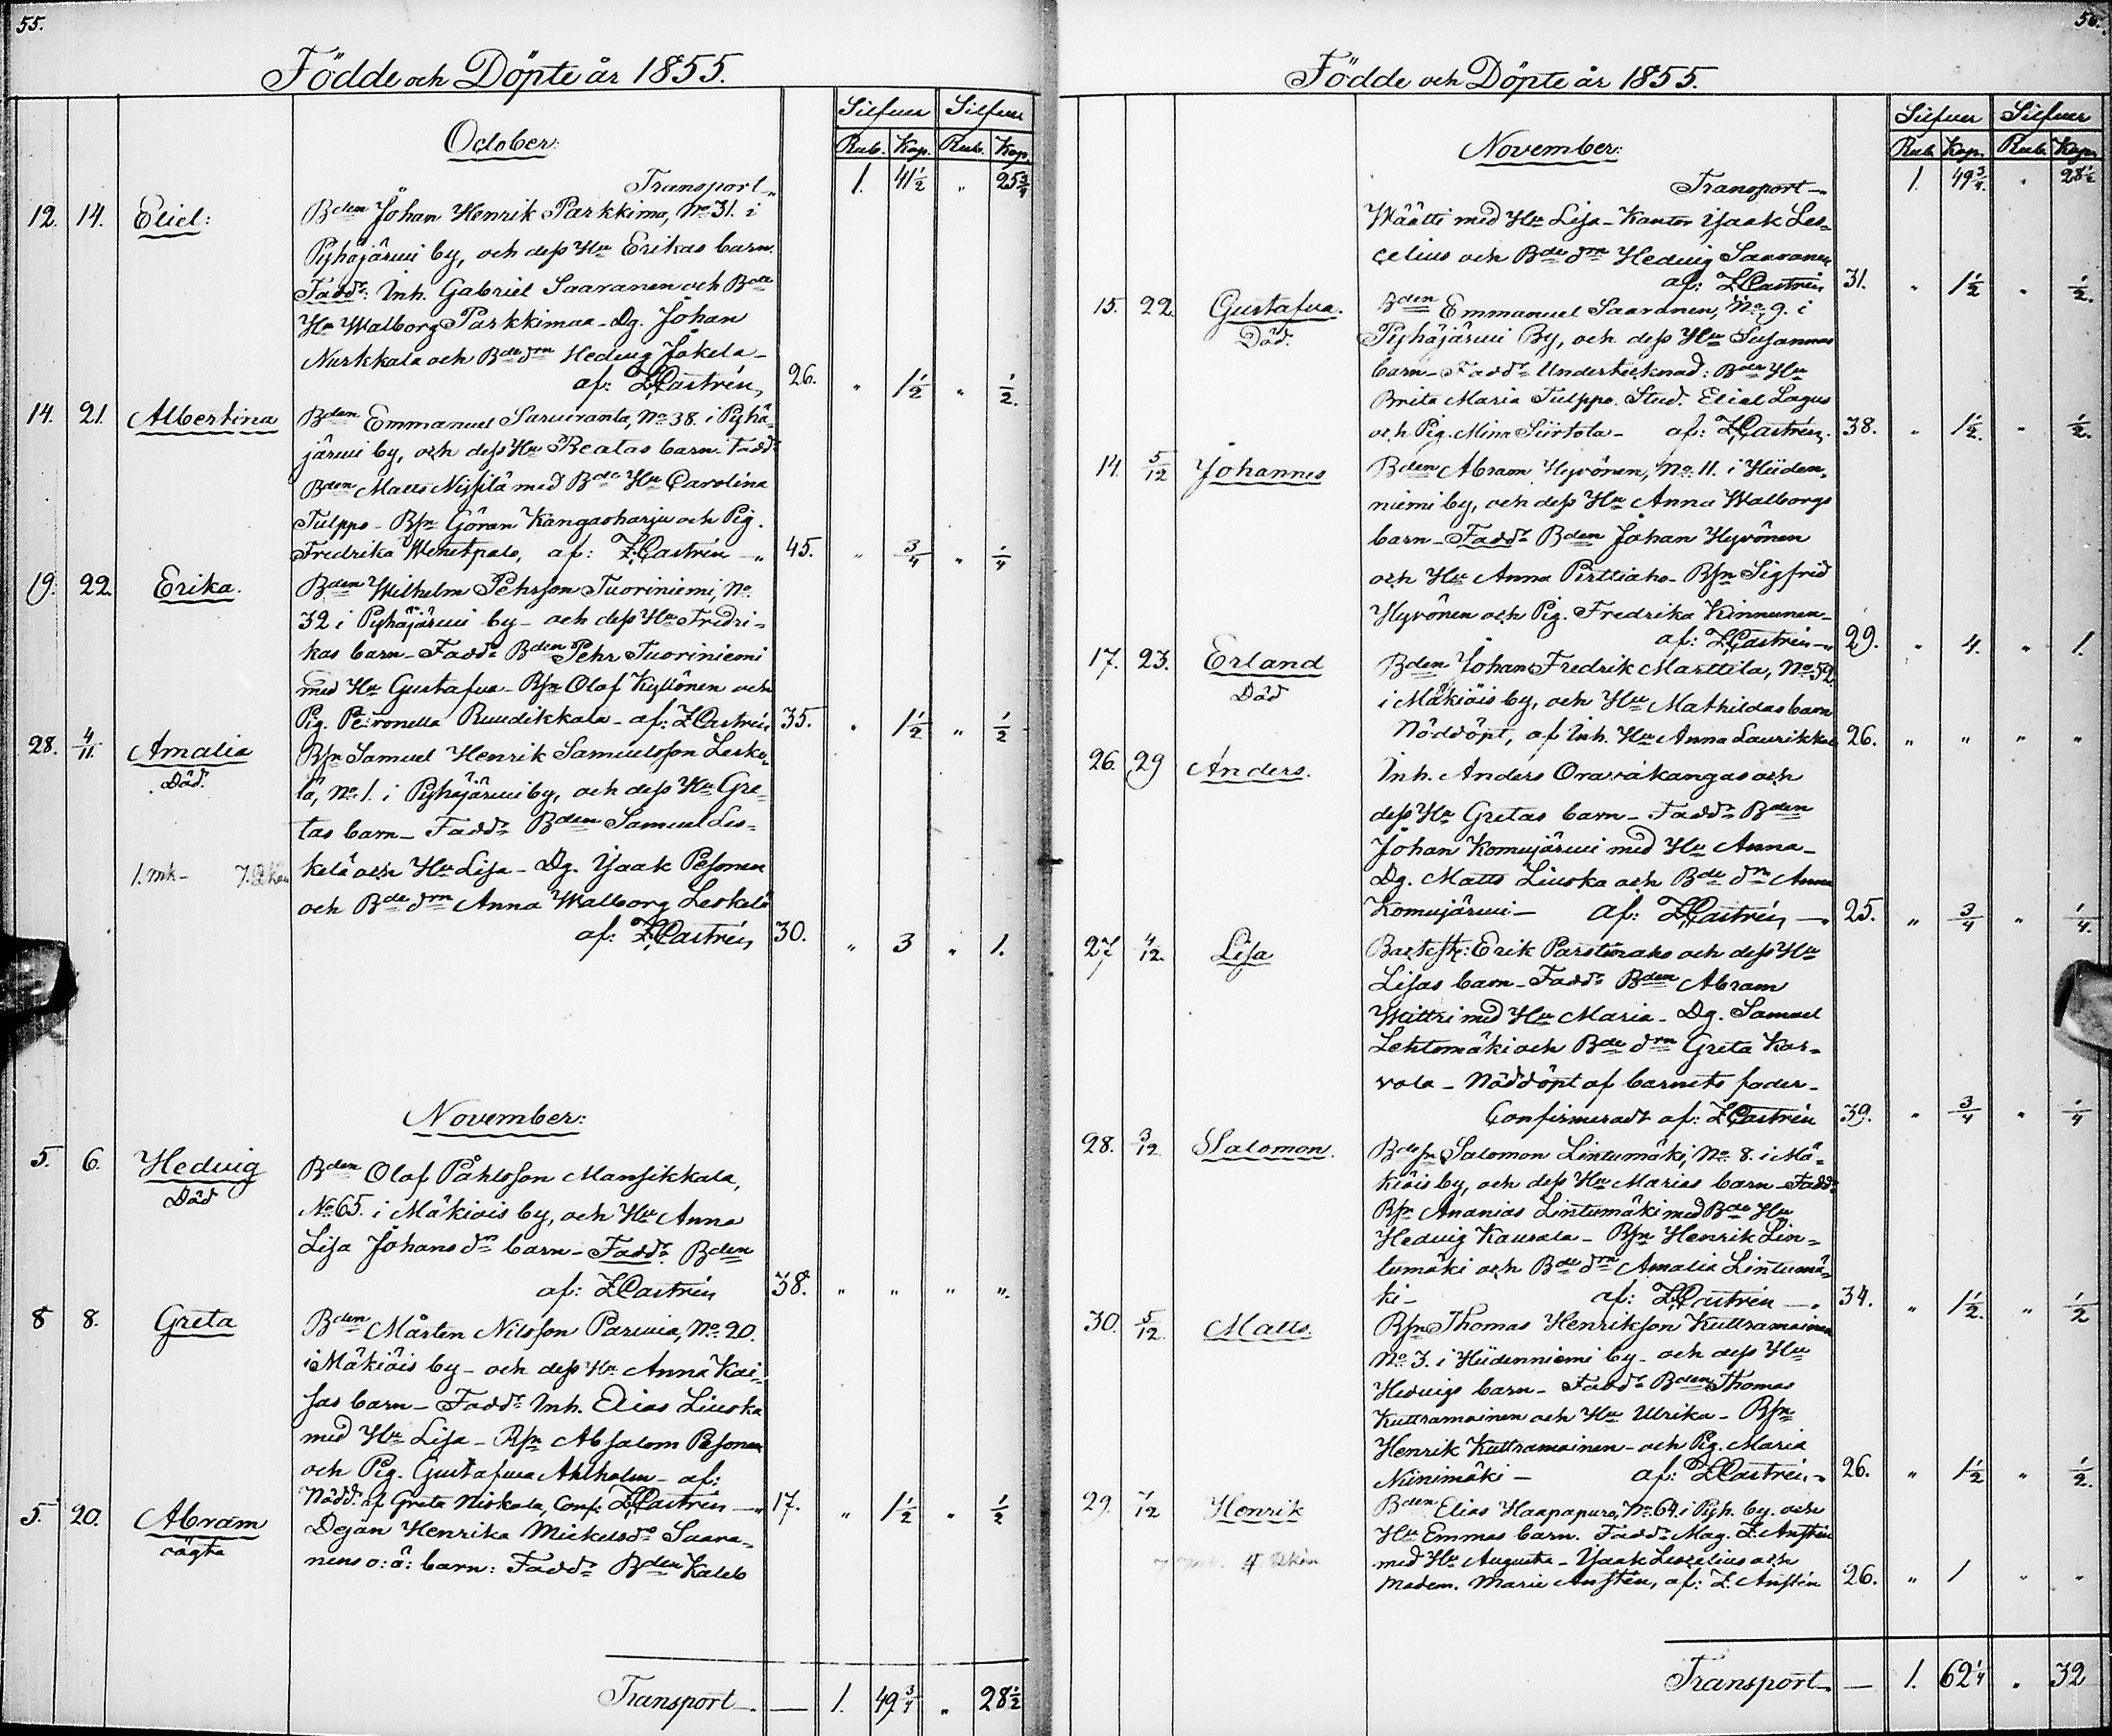 55.
Födde och Döpte år 1855.
Silfver Silfver
October: Rub. Kop. Rub. Kop.
Transport 1. 41 1/2 " 25 3/4
12. 14. Eliel: Bden Johan Henrik Parkkima, No 31. i
Pyhäjärvi by, och dess Hu Erikas barn.
Faddr: Inh. Gabriel Saaranen och Bde
Hu Walborg Parkkimaa - Dg. Johan
Nurkkala och Bdedrn Hedvig Jokela -
af: Z. Castrén, 26. " 1 1/2 " 1/2.
14. 21. Albertina Bden Emmanuel Saruiranta, No 38. i Pyhä-
järvi by, och dess Hu Beatas barn. Faddr
Bden Matts Nissilä med Bde Hu Carolina
Tulppo - Bsn Göran Kangasharju och Pig.
Fredrika Wenetpalo, af: Z. Castrén - " 45. " 3/4 " 1/4
19. 22. Erika. Bden Wilhelm Pehrsson Tuoriniemi, No
32 i Pyhäjärvi by - och dess Hu Fredri-
kas barn - Faddr Bden Pehr Tuoriniemi
med Hu Gustafva - Bsn Olof Kyllönen och
Pig. Petronella Ruudikkala - af: Z. Castrén 35. " 1 1/2 " 1/2
28. 4/11. Amalia Bsn Samuel Henrik Samuelsson Leske-
Död. lä, No 1. i Pyhäjärvi by, och dess Hu Gre-
tas barn - Faddr Bden Samuel Les-
1. mk - kelä och Hu Lisa - Dg. Isaak Pesonen
och Bde drn Anna Walborg Leskelä
af: Z. Castrén, 30. " 3 " 1.
November:
5. 6. Hedvig Bden Olof Påhlsson Mansikkala,
Död No 65. i Mäkiöis by, och Hu Anna
Lisa Johans dr barn - Faddr Bden
af: Z. Castrén 38. " " " ".
8 8. Greta Bden Mårten Nilsson Parvia, No 20.
i Mäkiöis by - och dess Hu Anna Kai-
sas barn - Faddr Inh. Elias Liuska
med Hu Lisa - Bsn Absalom Pesonen
och Pig. Gustafva Ahlholm - af:
Nödd. af Greta Niskala, Conf: Z. Castrén - " 17. " 1 1/2 " 1/2
5. 20. Abram Dejan Henrika Mickelsdr Saara-
oägta nens o: ä: barn: Faddr Bden Kaleb
Transport - — 1. 49 3/4 " 28 1/2
56.
Födde och Döpte år 1855.
Silfver Silfver
November: Rub. Kop. Rub. Kop.
Transport - 1. 49 3/4. " 28 1/2
Määtti med Hu Lisa - Kantor Isaak Les-
celius och Bde drn Hedvig Saaranen
af: Z. Castrén 31. " 1 1/2 " 1/2.
15. 22. Gustafva. Bden Emmanuel Saaranen, No 9. i
Död. Pyhäjärvi By, och dess Hu Susannas
barn - Faddr Undertecknad: Bde Hu
Brita Maria Tulppo. Stud. Elial Lagus
och Pig. Mina Siirtola - af: Z. Castrén. 38. " 1 1/2. " 1/2.
14. 5/12 Johannes Bden Abram Hyvönen, No 11. i Hiiden-
niemi by, och dess Hu Anna Walborgs
barn - Faddr Bden Johan Hyvönen
och Hu Anna Pirttiaho - Bsn Sigfrid
Hyvönen och Pig. Fredrika Kinnunen -
af: Z. Castrén - " 29. " 4. " 1.
17. 23. Erland Bden Johan Fredrik Marttila, No 52.
Död i Mäkiöis by, och Hu Mathildas barn
Nöddöpt, af Inh. Hu Anna Laurikkala 26. " " " "
26. 29 Anders. Inh. Anders Oravakangas och
dess Hu Gretas barn - Faddr Bden
Johan Komujärvi med Hu Anna -
Dg. Matts Liuska och Bde drn Anna
Komujärvi - af: Z. Castrén - " 25. " 3/4 " 1/4.
27 4/12. Lisa Erik Parsimaho och dess Hu
Lisas barn - Faddr Bden Abram
Wittri med Hu Maria - Dg. Samuel
Lehtomäki och Bde drn Greta Kar-
vola - Nöddöpt af barnets fader -
Confirmeradt af: Z. Castrén 39. " 3/4 " 1/4
28. 3/12 Salomon. Bdesn Salomon Lintumäki, No 8. i Mä-
kiöis by, och dess Hu Marias barn - Faddr
Bsn Ananias Lintumäki med Bde Hu
Hedvig Kaurala - Bsn Henrik Lin-
tumäki och Bde drn Amalia Lintumä-
ki - af: Z. Castrén - " 34. " 1 1/2. " 1/2
30. 5/12. Matts. Bsn Thomas Henriksson Kuttramoinen
No 3. i Hiidenniemi by - och dess Hu
Hedvigs barn - Faddr Bden Thomas
Kuttramoinen och Hu Ulrika - Bsn
Henrik Kuttramoinen - och Pig. Maria
Niinimäki - af: Z. Castrén - " 26. " 1 1/2 " 1/2.
29. 7/12 Henrik Bden Elias Haapapuro, No 64. i Pyh. by. och
Hu Emmas barn. Faddr Mag. Z. Anstén
med Hu Augusta - Isaak Lescelius och
Madem. Maria Anstén, af: Z. Anstén 26. " 1 " "
Transport - — 1. 62 1/4 " 32